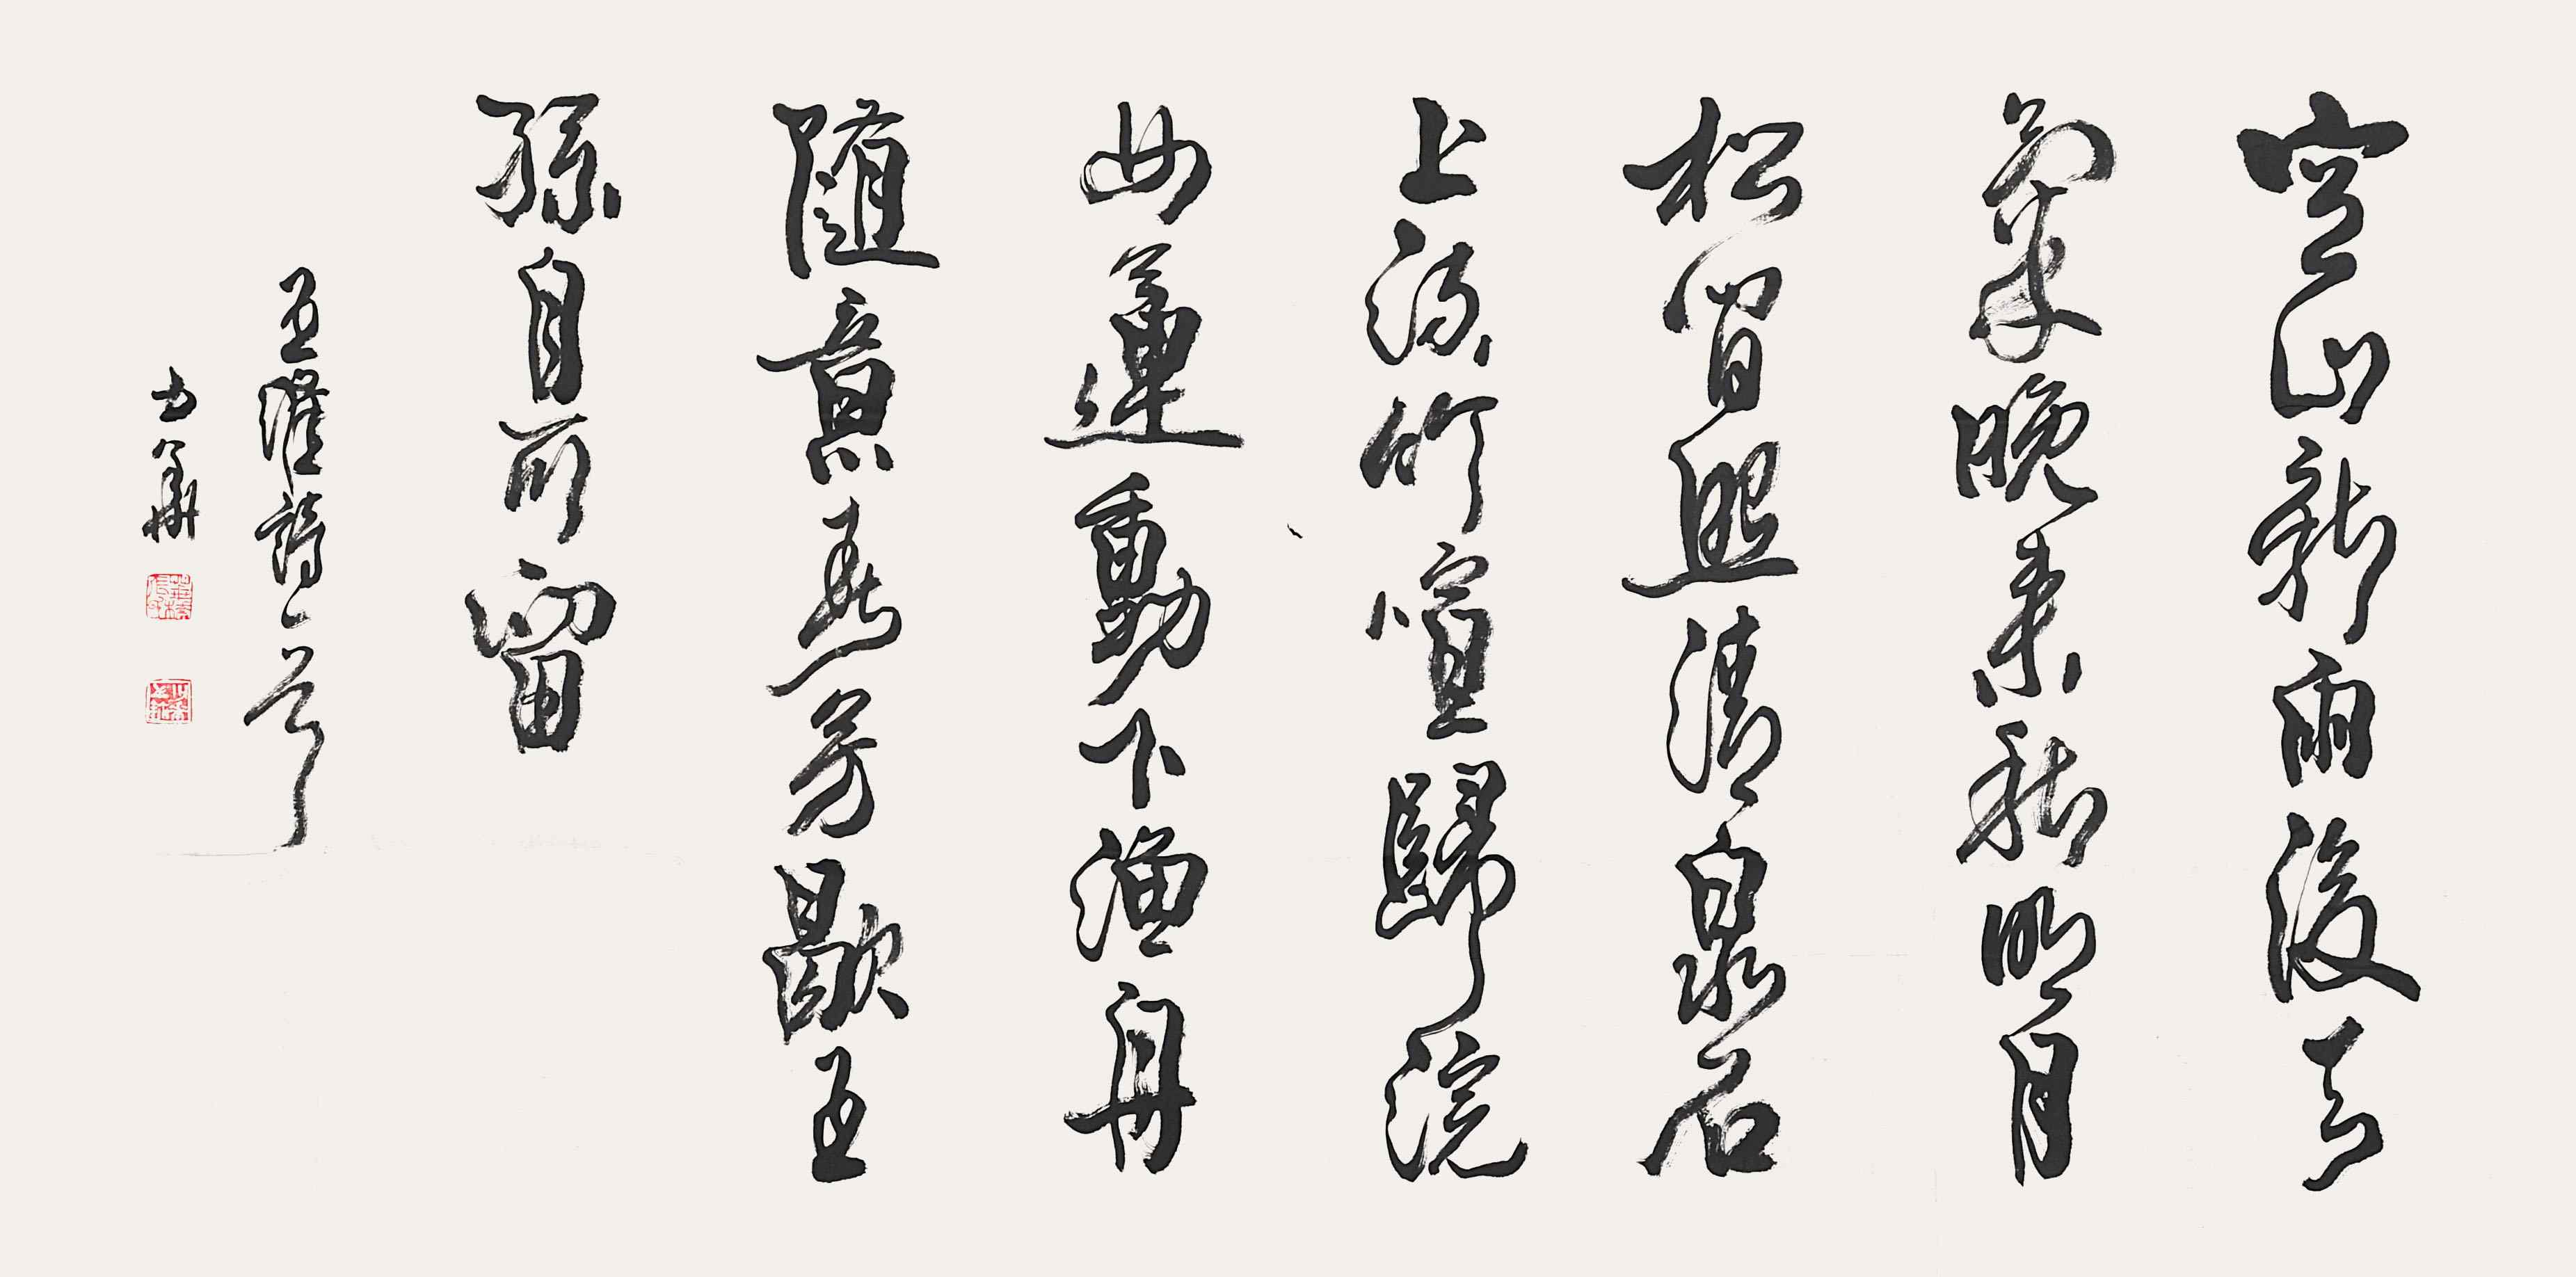 空山新雨後天
氣來晚来秋明月
松間照清泉石
上流竹喧歸浣
女蓮動下漁舟
随意春芳歇王
孫自可留
王維詩一首